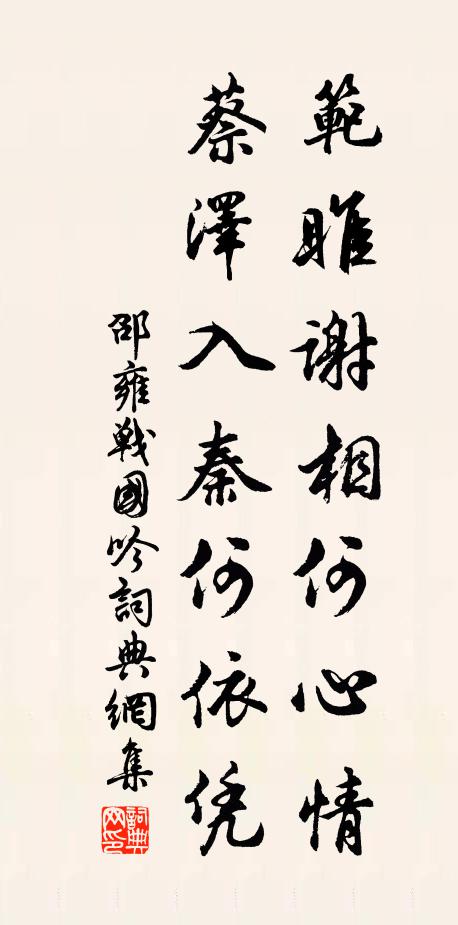 範睢謝相何心情
蔡澤入秦何依凭
邵雍戰國吟詞典網集
詞典網印